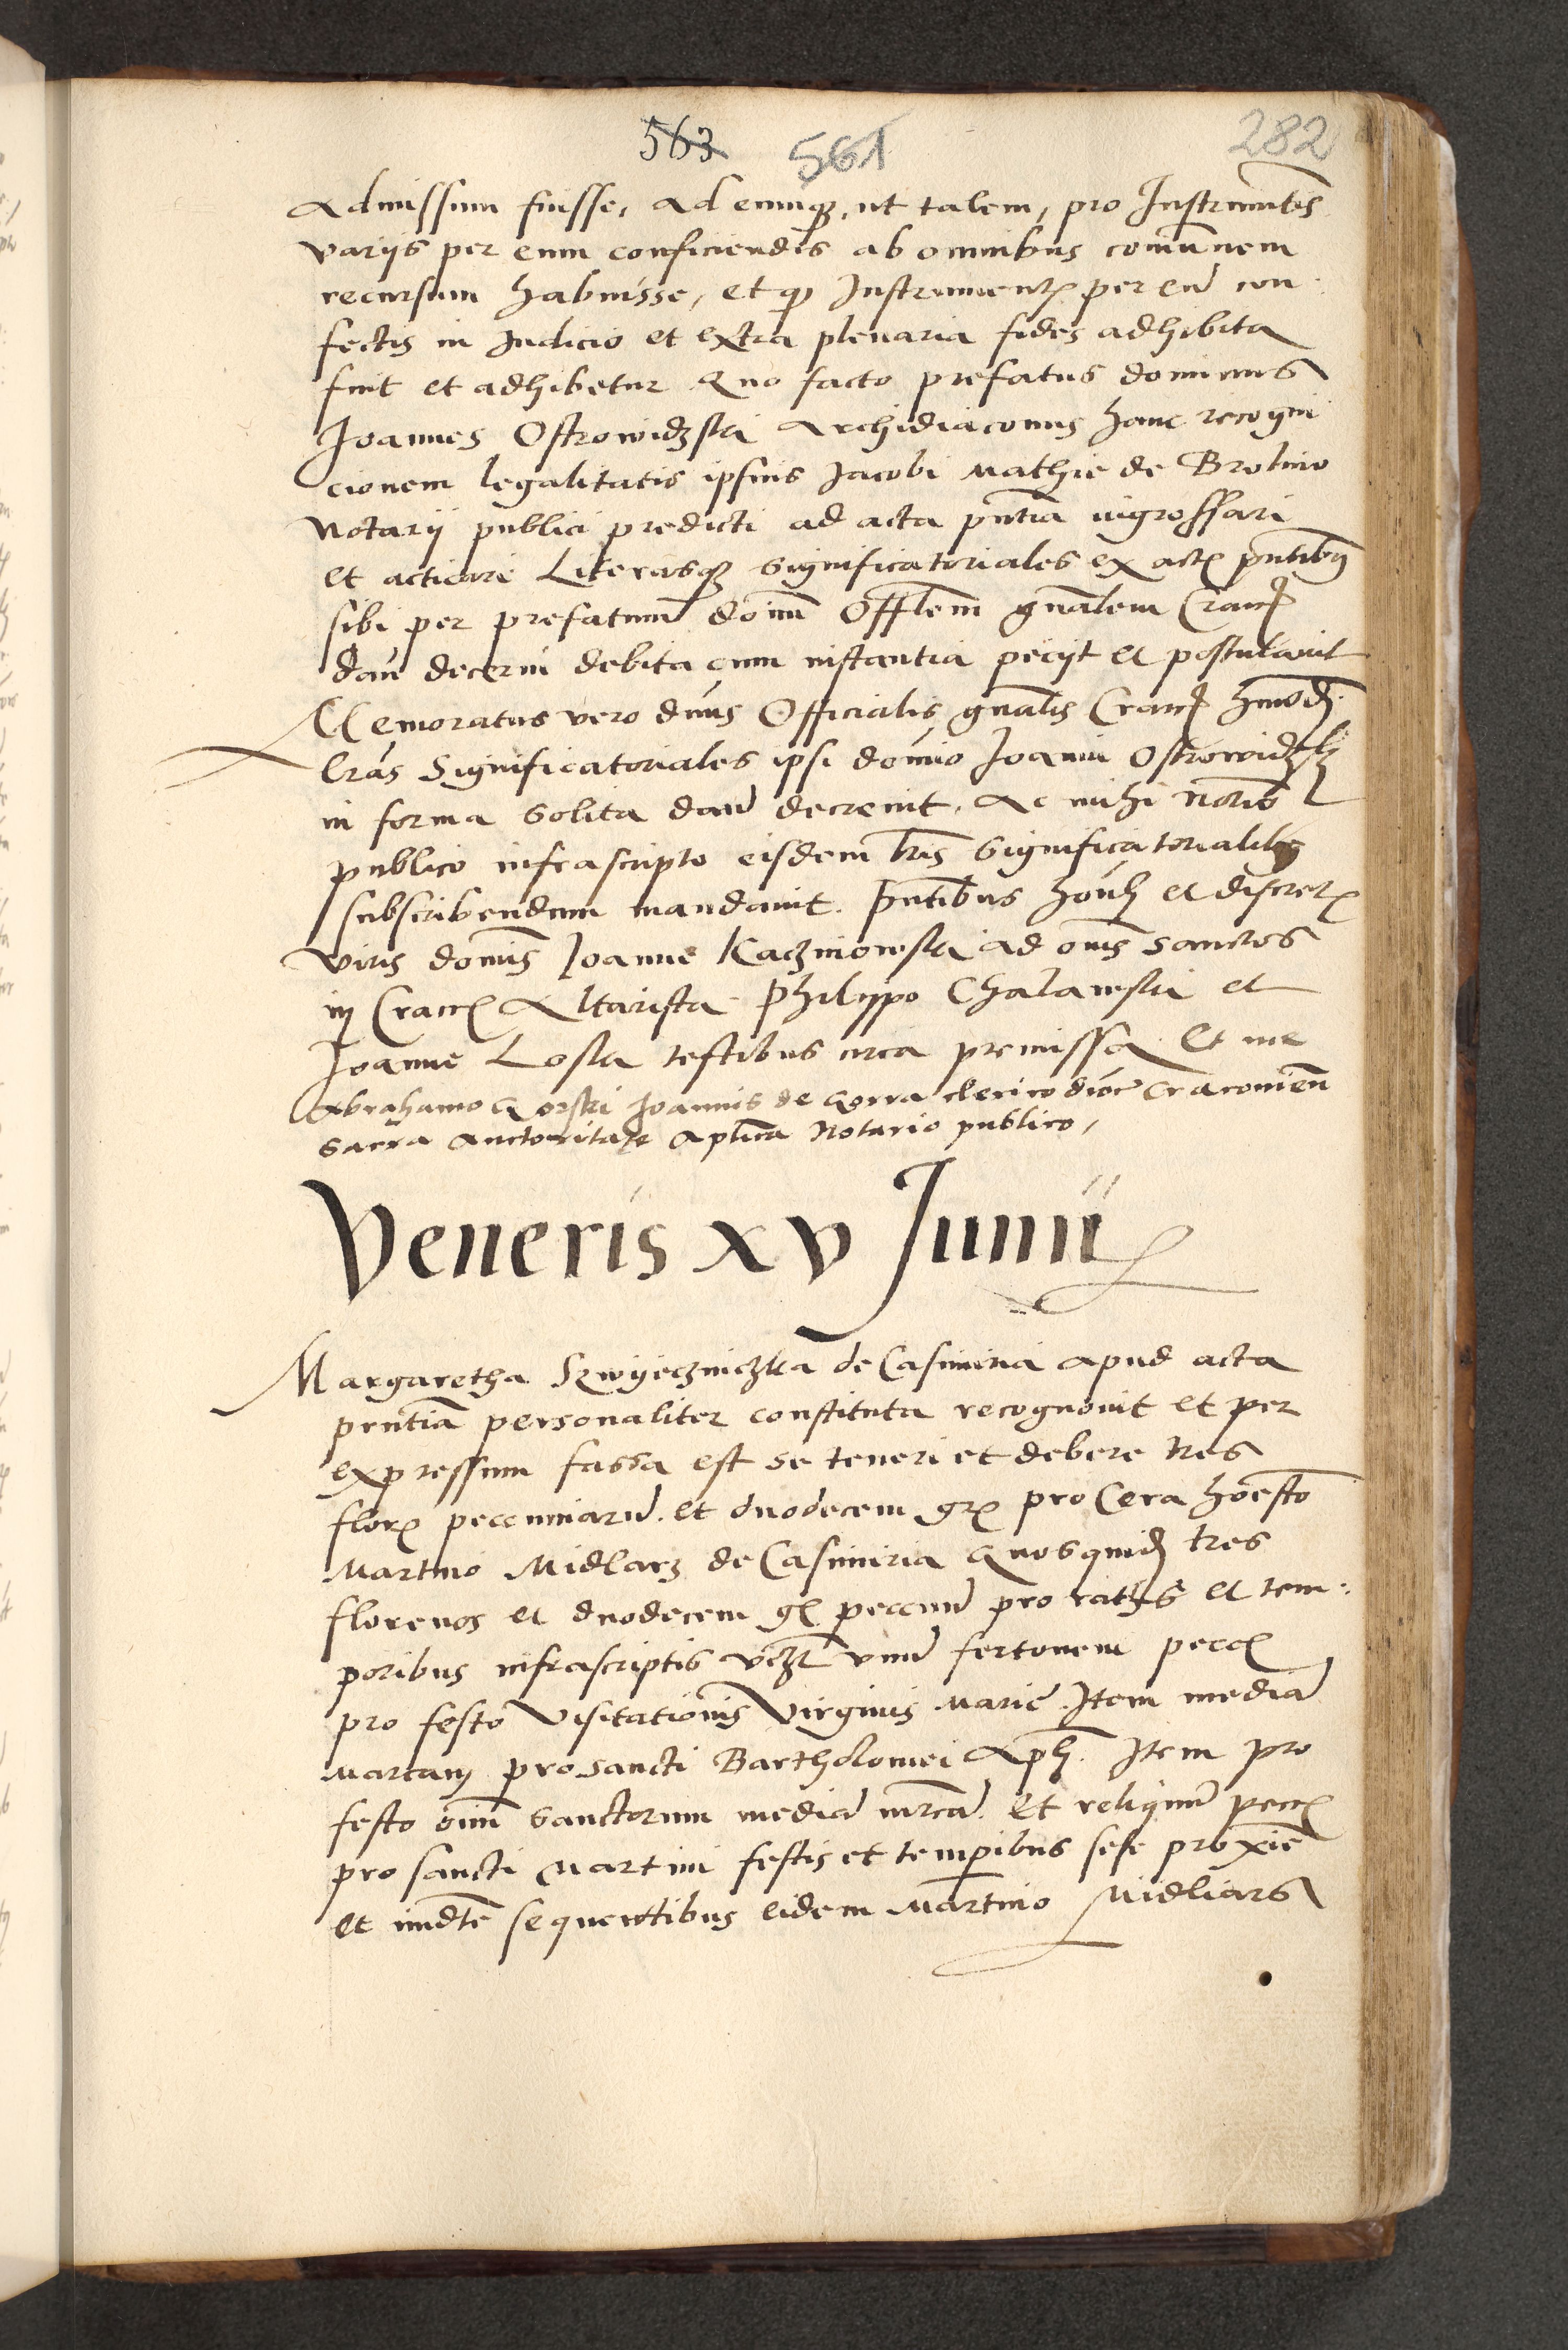 563 561 282
Admissum fuisse, ad eumq; ut talem, pro Instrumētis
varijs per eum conficiendis ab omnibus comūnem
recursum habuisse, et q̄ Instrumentꝭ per eū con
fectis in Iudicio et extra plenaria fides adhibita
fuit et adhibetur Quo facto prefatus dominus
Joannes Ostrowidzski Archidiaconus hanc recogni
cionem legalitatis ipsius Jacobi Mathie de
Notarij publici predicti ad acta pn̄tia ingrossari
et acticari Literasq; significatoriales ex actꝭ pn̄tibꝰ
sibi per prefatum dōnm Offlem gn̄alem Cracꝭ
dari decerni debita cum instantia pecijt et postulavit
Memoratus vero dn̄us Officialis gn̄alis Cracꝭ hmōdi
l̄ras Significatoriales ipsi domino Joanni Ostrowidzkj
in forma solita dan̄d decrevit, Ac mihi Notō
publico infrascripto eisdem l̄ris significatorialibꝰ
subscribendum mandavit. Pn̄tibus hon̄b et discretꝭ
viris dōmis Joanne Kaczniowski ad om̄s sanctos
in Cracꝭ Altarista Philippo Chalawski et
Joanne Loska testibus circa premissa Et me
Abrahamo Gorski Joannis de Gorra clerico dioc Cracovien̄
sacra auctoritate Aplica Notario publico,
Veneris xv Junij
Margaretha Szwyeczniczka de Casimiria apud acta
prn̄tia personaliter constituta recognovit et per
expressum fassa est se teneri et debere tres
florꝭ peccuniarū. et duodecem grꝭ pro Cera hōesto
Martino Midlarz de Casimiria Quosquidē tres
florenos et duodecem gꝭ peccun̄ pro rathis et tem
poribus infrascriptis vczt unū fertonem peccꝭ
pro festo Visitationis Virginis Marie Item mediā
Marcam pro sancti Bartholomei Apłi. Item pro
festo om̄m sanctorum mediā mrcā. Et reliquū peccꝭ
pro sancti Martini festis et temporibus sese proxīe
et imdte sequentibus eidem Martino Midliars